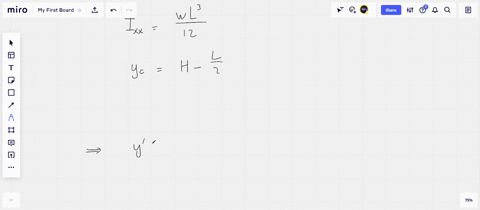 miro My First Board Share
I_xx = wL³/12
y_c = H - L/2
⇒ y'
75%